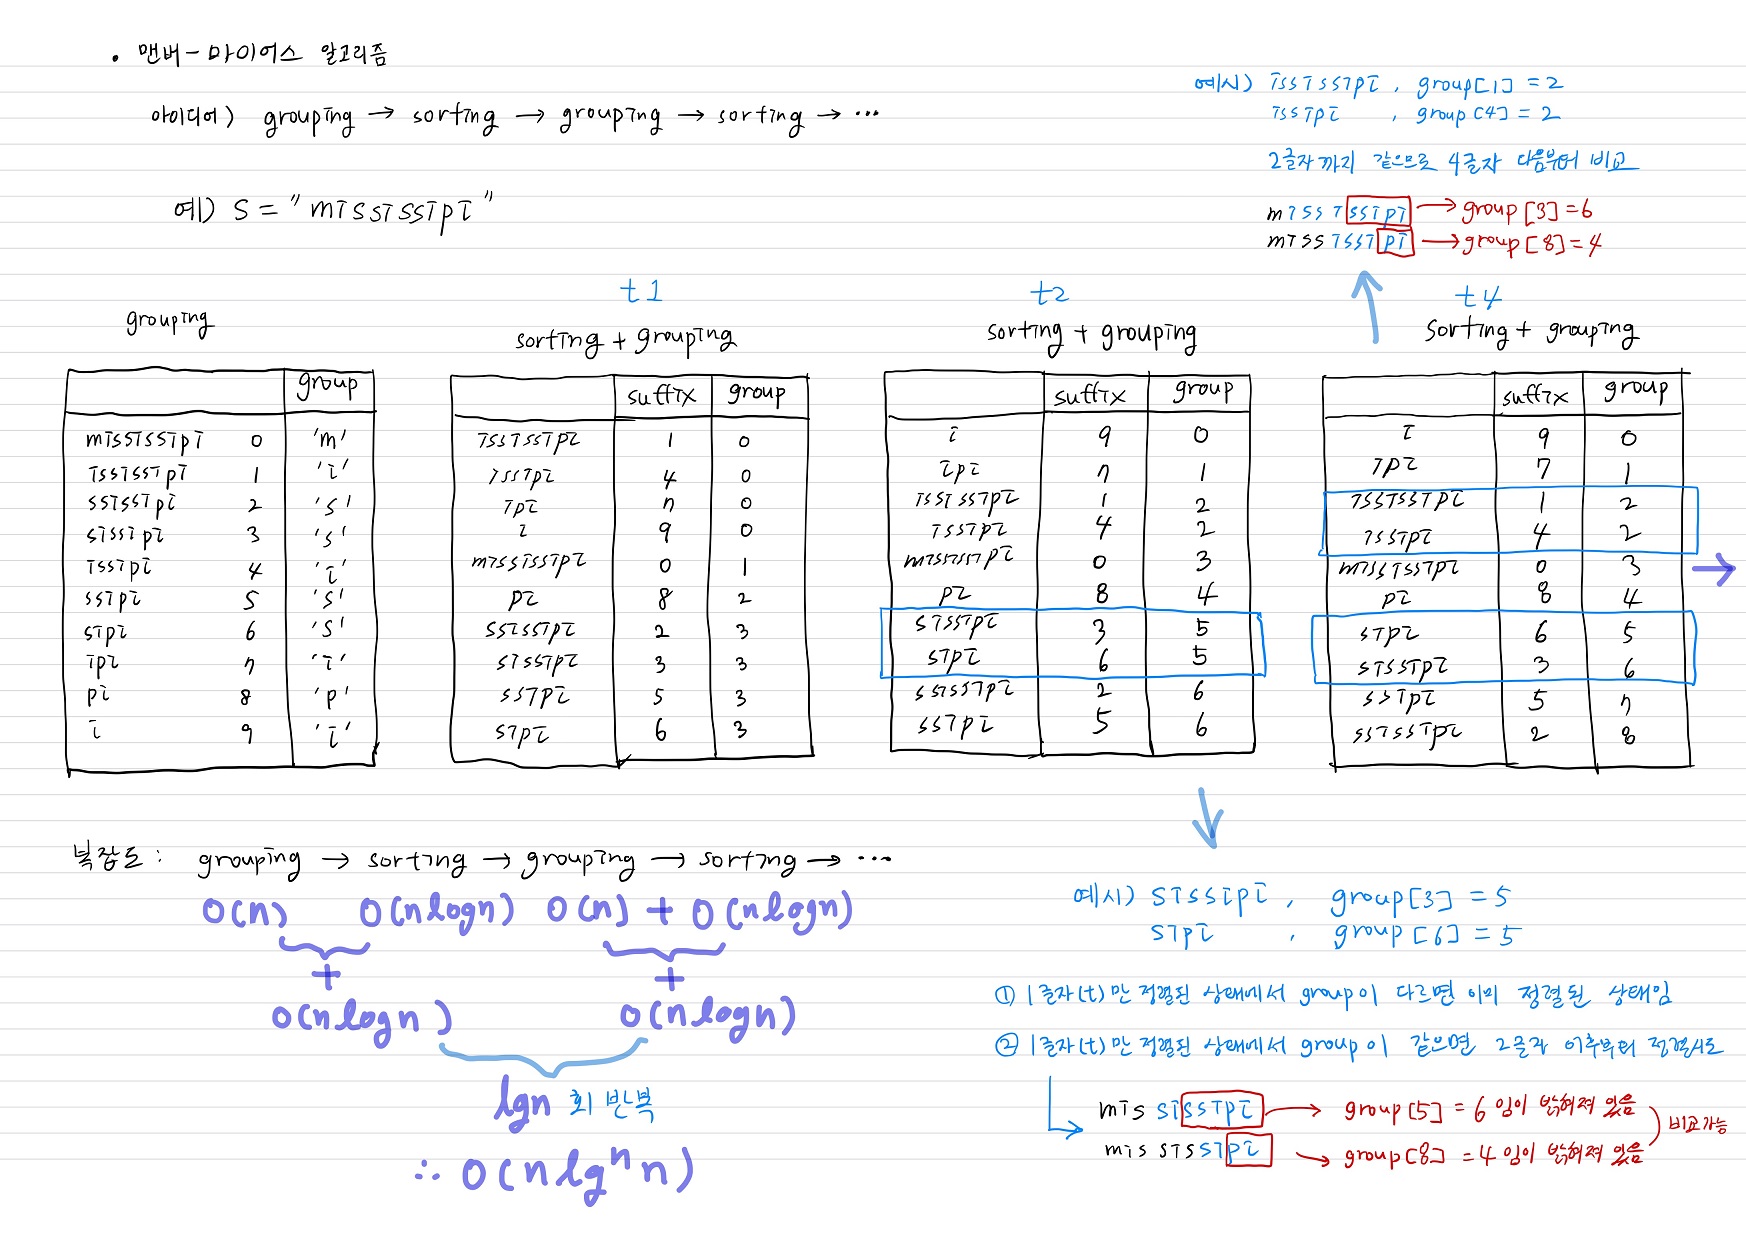 • 맨버-마이어스 알고리즘
아이디어) grouping → sorting → grouping → sorting → ...
예) S = "mississipi"
예시) ississipi, group[1] = 2
issipi, group[4] = 2
2글자까지 같으므로 4글자 다음부터 비교
mississipi → group[3] = 6
mississipi → group[8] = 4
grouping
group
mississipi 0 'm'
ississipi 1 'i'
ssissipi 2 's'
sissipi 3 's'
issipi 4 'i'
ssipi 5 's'
sipi 6 's'
ipi 7 'i'
pi 8 'p'
i 9 'i'
t1
sorting + grouping
suffix group
ississipi 1 0
issipi 4 0
ipi 7 0
i 9 0
mississipi 0 1
pi 8 2
ssissipi 2 3
sissipi 3 3
ssipi 5 3
sipi 6 3
t2
sorting + grouping
suffix group
i 9 0
ipi 7 1
ississipi 1 2
issipi 4 2
mississipi 0 3
pi 8 4
sissipi 3 5
sipi 6 5
ssissipi 2 6
ssipi 5 6
t4
sorting + grouping
suffix group
i 9 0
ipi 7 1
ississipi 1 2
issipi 4 2
mississipi 0 3
pi 8 4
sipi 6 5
sissipi 3 6
ssipi 5 7
ssissipi 2 8
→
복잡도 : grouping → sorting → grouping → sorting → ...
O(n) O(nlogn) O(n) + O(nlogn)
+ +
O(nlogn) O(nlogn)
lgn 회 반복
∴ O(nlgⁿn)
예시) sissipi, group[3] = 5
sipi, group[6] = 5
① 1글자(t)만 정렬된 상태에서 group이 다르면 이미 정렬된 상태임
② 1글자(t)만 정렬된 상태에서 group이 같으면 2글자 이후부터 정렬시도
mississipi → group[5] = 6 임이 밝혀져 있음
mississipi → group[8] = 4 임이 밝혀져 있음
비교가능